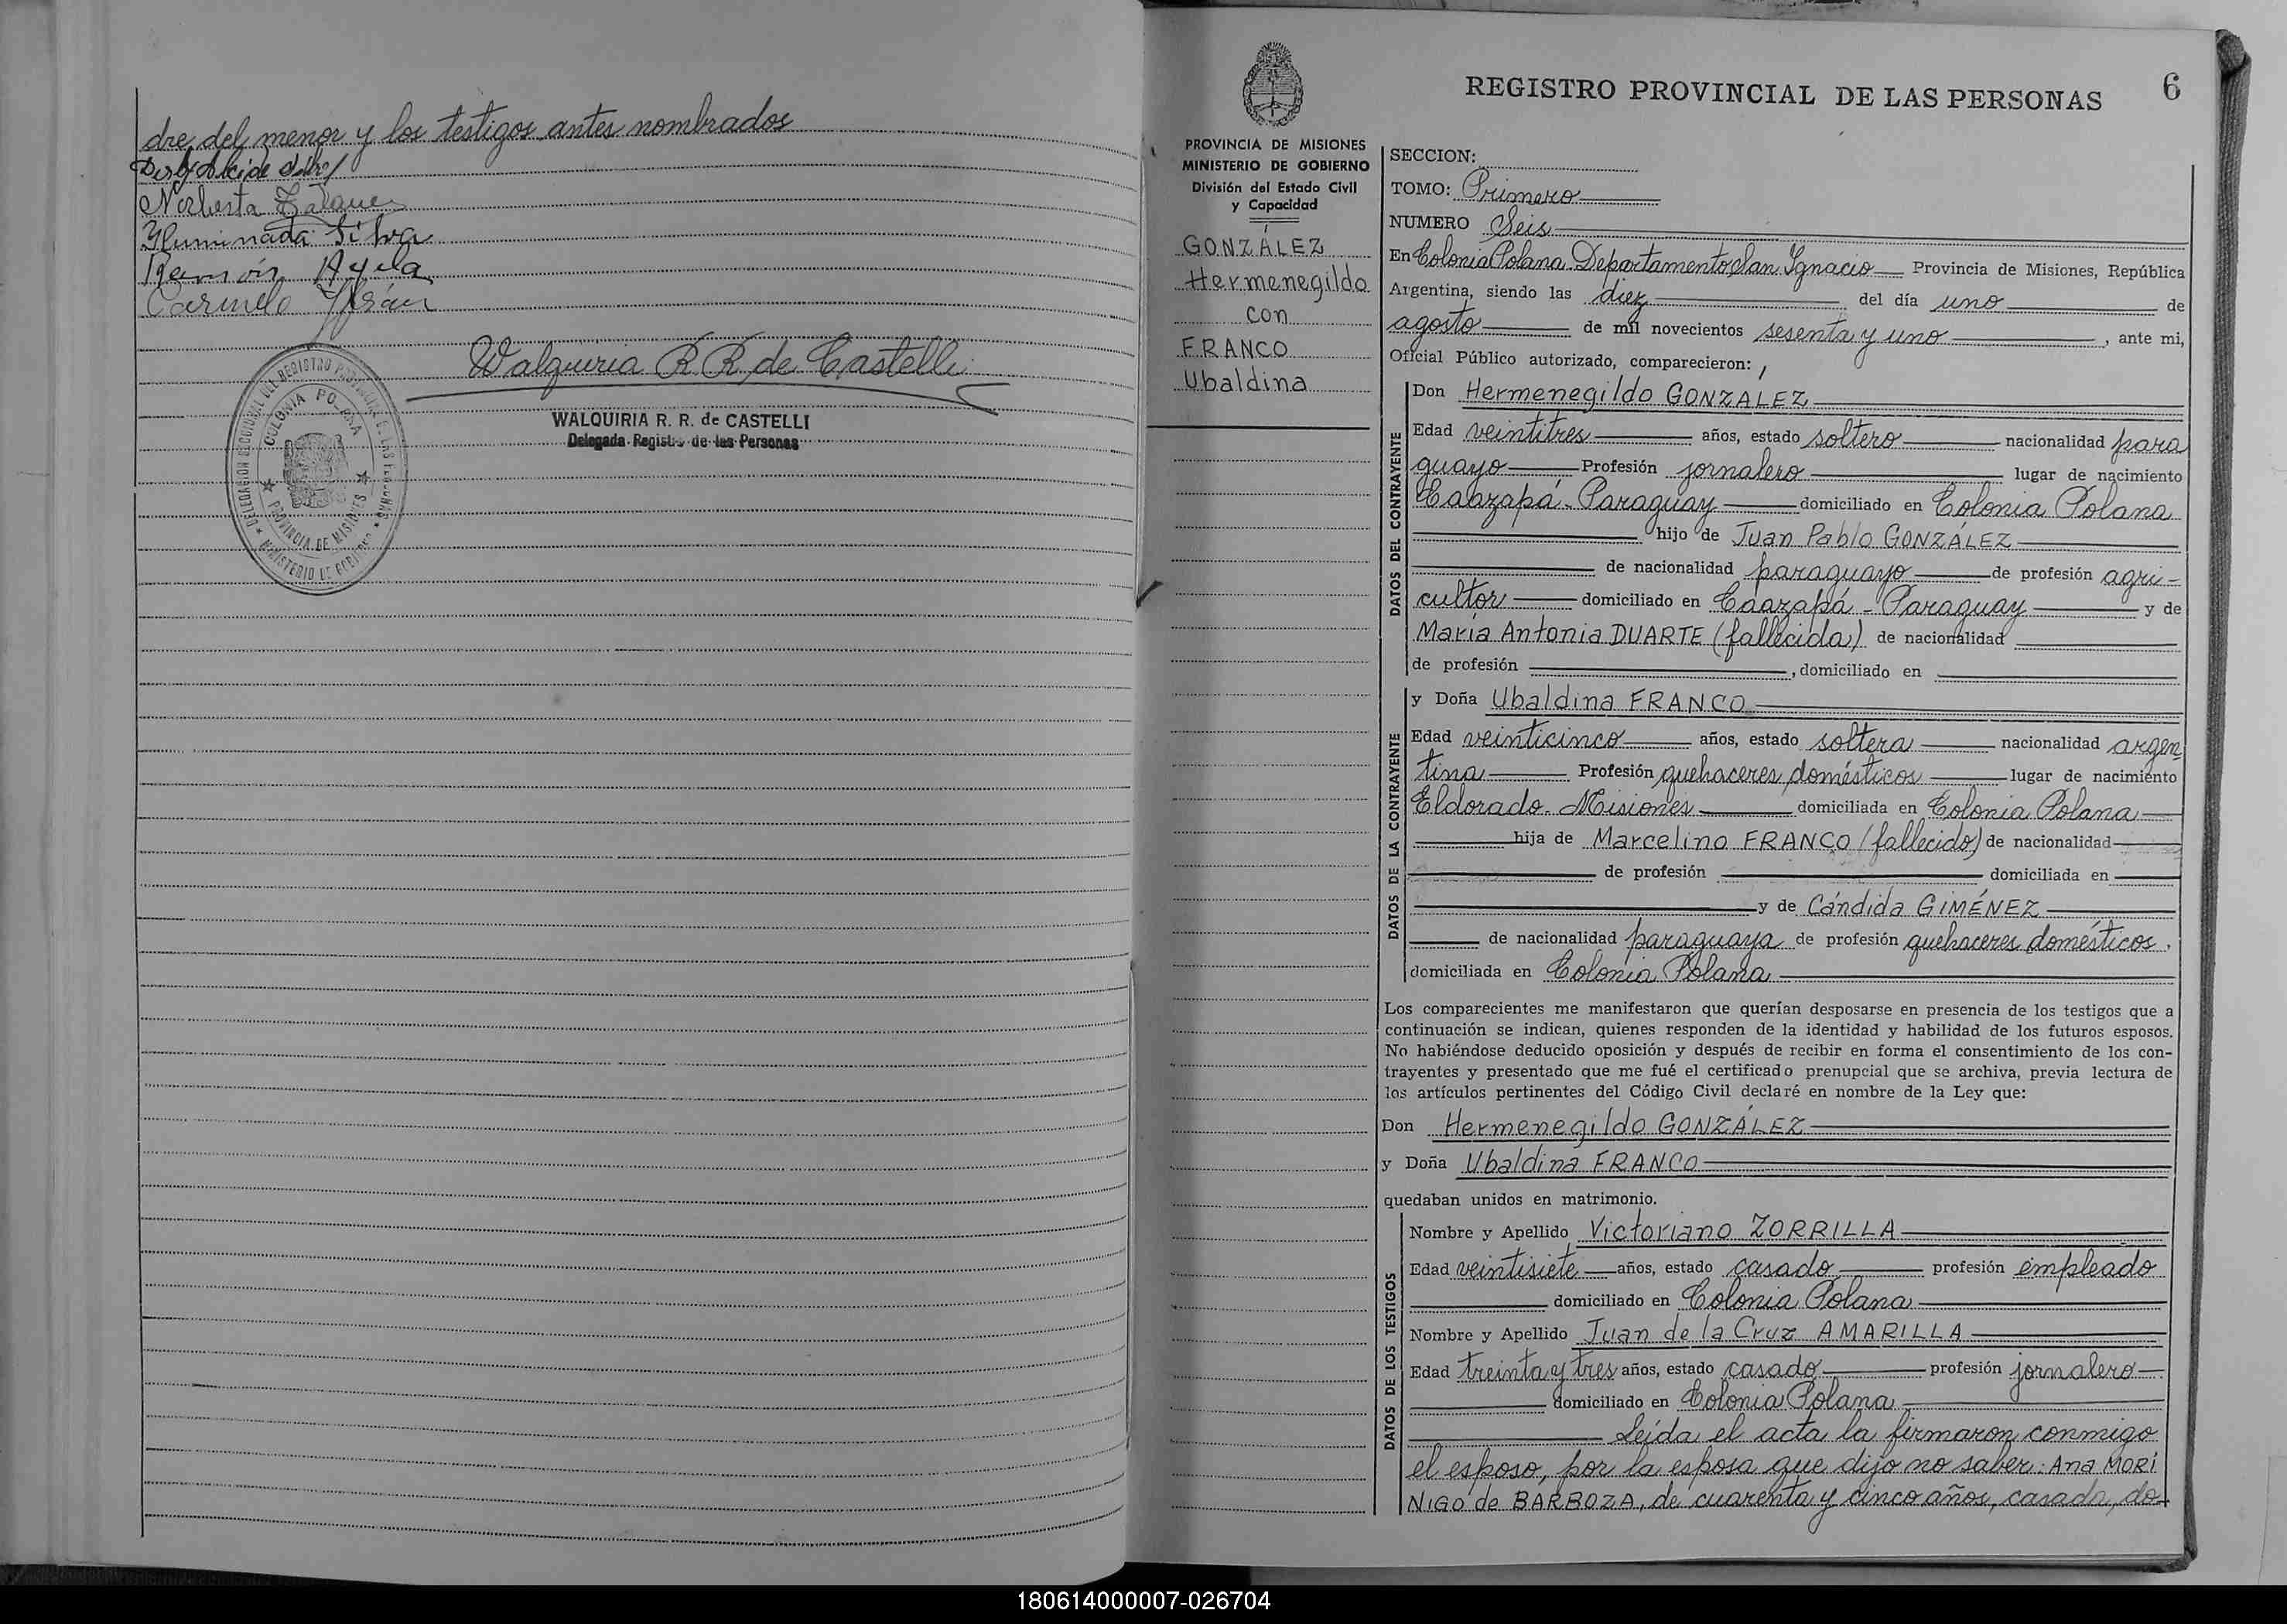 dre del menor y los testigos antes nombrados
Norberta
Iluminada Silva
Ramón Ayala
Carmelo
Walquiria R. R. de Castelli
WALQUIRIA R. R. de CASTELLI
Delegada Registro de las Personas
COLONIA POLANA
PROVINCIA DE MISIONES
MINISTERIO DE GOBIERNO
6
REGISTRO PROVINCIAL DE LAS PERSONAS
PROVINCIA DE MISIONES
MINISTERIO DE GOBIERNO
División del Estado Civil
y Capacidad
GONZÁLEZ
Hermenegildo
con
FRANCO
Ubaldina
SECCION:
TOMO: Primero
NUMERO Seis
En Colonia Polana Departamento San Ignacio Provincia de Misiones, República
Argentina, siendo las diez del día uno de
agosto de mil novecientos sesenta y uno, ante mi,
Oficial Público autorizado, comparecieron:
DATOS DEL CONTRAYENTE
Don Hermenegildo GONZALEZ
Edad veintitres años, estado soltero nacionalidad para
guayo Profesión jornalero lugar de nacimiento
Caazapá - Paraguay domiciliado en Colonia Polana
hijo de Juan Pablo GONZÁLEZ
de nacionalidad paraguayo de profesión agri-
cultor domiciliado en Caazapá - Paraguay y de
María Antonia DUARTE (fallecida) de nacionalidad
de profesión , domiciliado en
DATOS DE LA CONTRAYENTE
y Doña Ubaldina FRANCO
Edad veinticinco años, estado soltera nacionalidad argen
tina Profesión quehaceres domésticos lugar de nacimiento
Eldorado. Misiones domiciliada en Colonia Polana
hija de Marcelino FRANCO (fallecido) de nacionalidad
de profesión domiciliada en
y de Cándida GIMÉNEZ
de nacionalidad paraguaya de profesión quehaceres domésticos,
domiciliada en Colonia Polana
Los comparecientes me manifestaron que querían desposarse en presencia de los testigos que a
continuación se indican, quienes responden de la identidad y habilidad de los futuros esposos.
No habiéndose deducido oposición y después de recibir en forma el consentimiento de los con-
trayentes y presentado que me fué el certificado prenupcial que se archiva, previa lectura de
los artículos pertinentes del Código Civil declaré en nombre de la Ley que:
Don Hermenegildo GONZÁLEZ
y Doña Ubaldina FRANCO
quedaban unidos en matrimonio.
DATOS DE LOS TESTIGOS
Nombre y Apellido Victoriano ZORRILLA
Edad veintisiete años, estado casado profesión empleado
domiciliado en Colonia Polana
Nombre y Apellido Juan de la Cruz AMARILLA
Edad treinta y tres años, estado casado profesión jornalero
domiciliado en Colonia Polana
Leída el acta la firmaron conmigo
el esposo, por la esposa que dijo no saber: Ana MORI
NIGO de BARBOZA, de cuarenta y cinco años, casada, do-
180614000007-026704